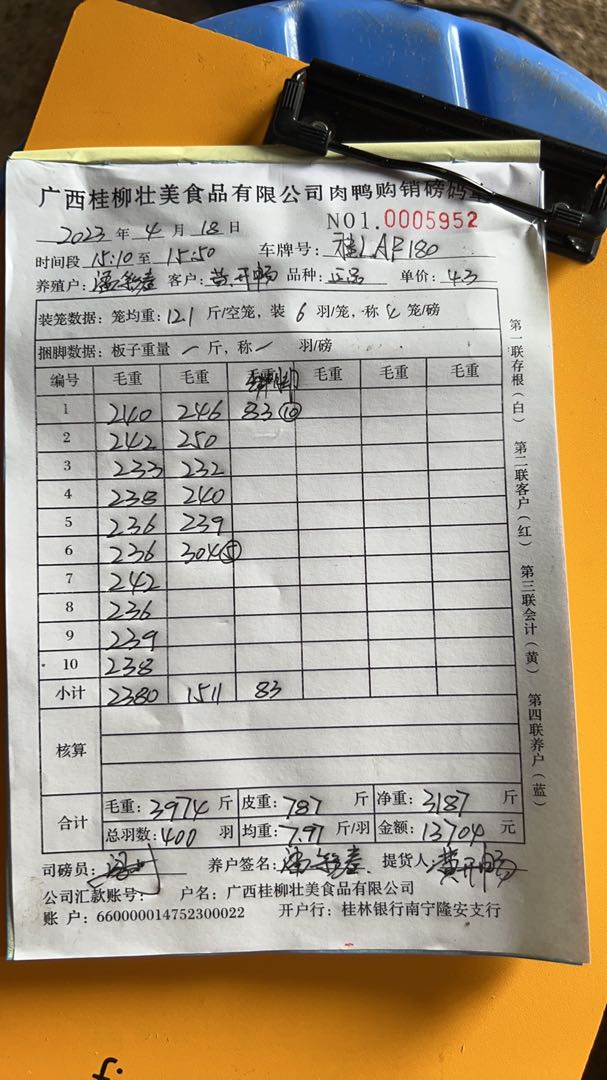 广西桂柳壮美食品有限公司肉鸭购销磅码单
2023 年 4 月 18 日 NO1.0005952
时间段 15:10 至 15:50 车牌号: 桂LAP180
养殖户: 客户: 黄开畅 品种: 正品 单价: 4.3
装笼数据: 笼均重: 12.1 斤/空笼, 装 6 羽/笼, 称 4 笼/磅
捆脚数据: 板子重量 一 斤, 称 一 羽/磅
编号 毛重 毛重 毛重 毛重 毛重
1 240 246 83 ⑩
2 242 250
3 233 232
4 238 240
5 236 239
6 236 304 ⑤
7 242
8 236
9 239
10 238
小计 2380 1511 83
核算
合计 毛重: 3974 斤 皮重: 787 斤 净重: 3187 斤
总羽数: 400 羽 均重: 7.97 斤/羽 金额: 13704 元
司磅员: 养户签名: 提货人: 黄开畅
公司汇款账号: 户名: 广西桂柳壮美食品有限公司
账 户: 660000014752300022 开户行: 桂林银行南宁隆安支行
第一联存根(白) 第二联客户(红) 第三联会计(黄) 第四联养户(蓝)